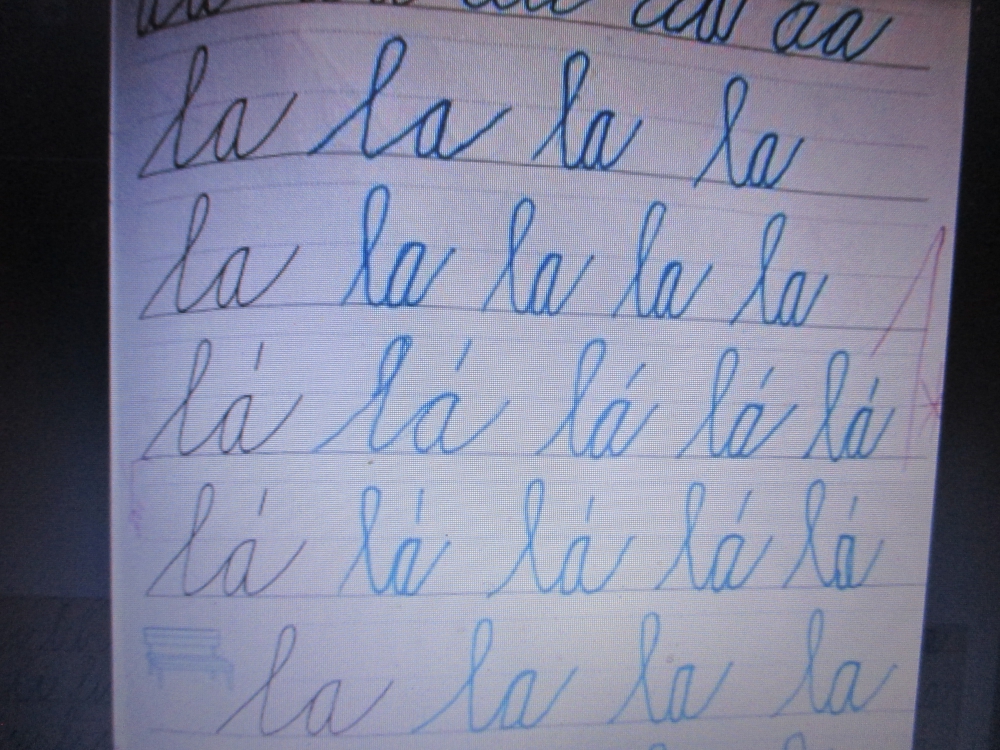 aa
la la la la
la la la la la
lá lá lá lá lá
lá lá lá lá lá
la la la la